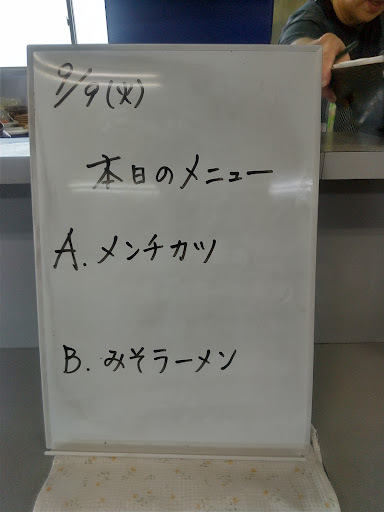 9/9(火)
本日のメニュー
A. メンチカツ
B. みそラーメン